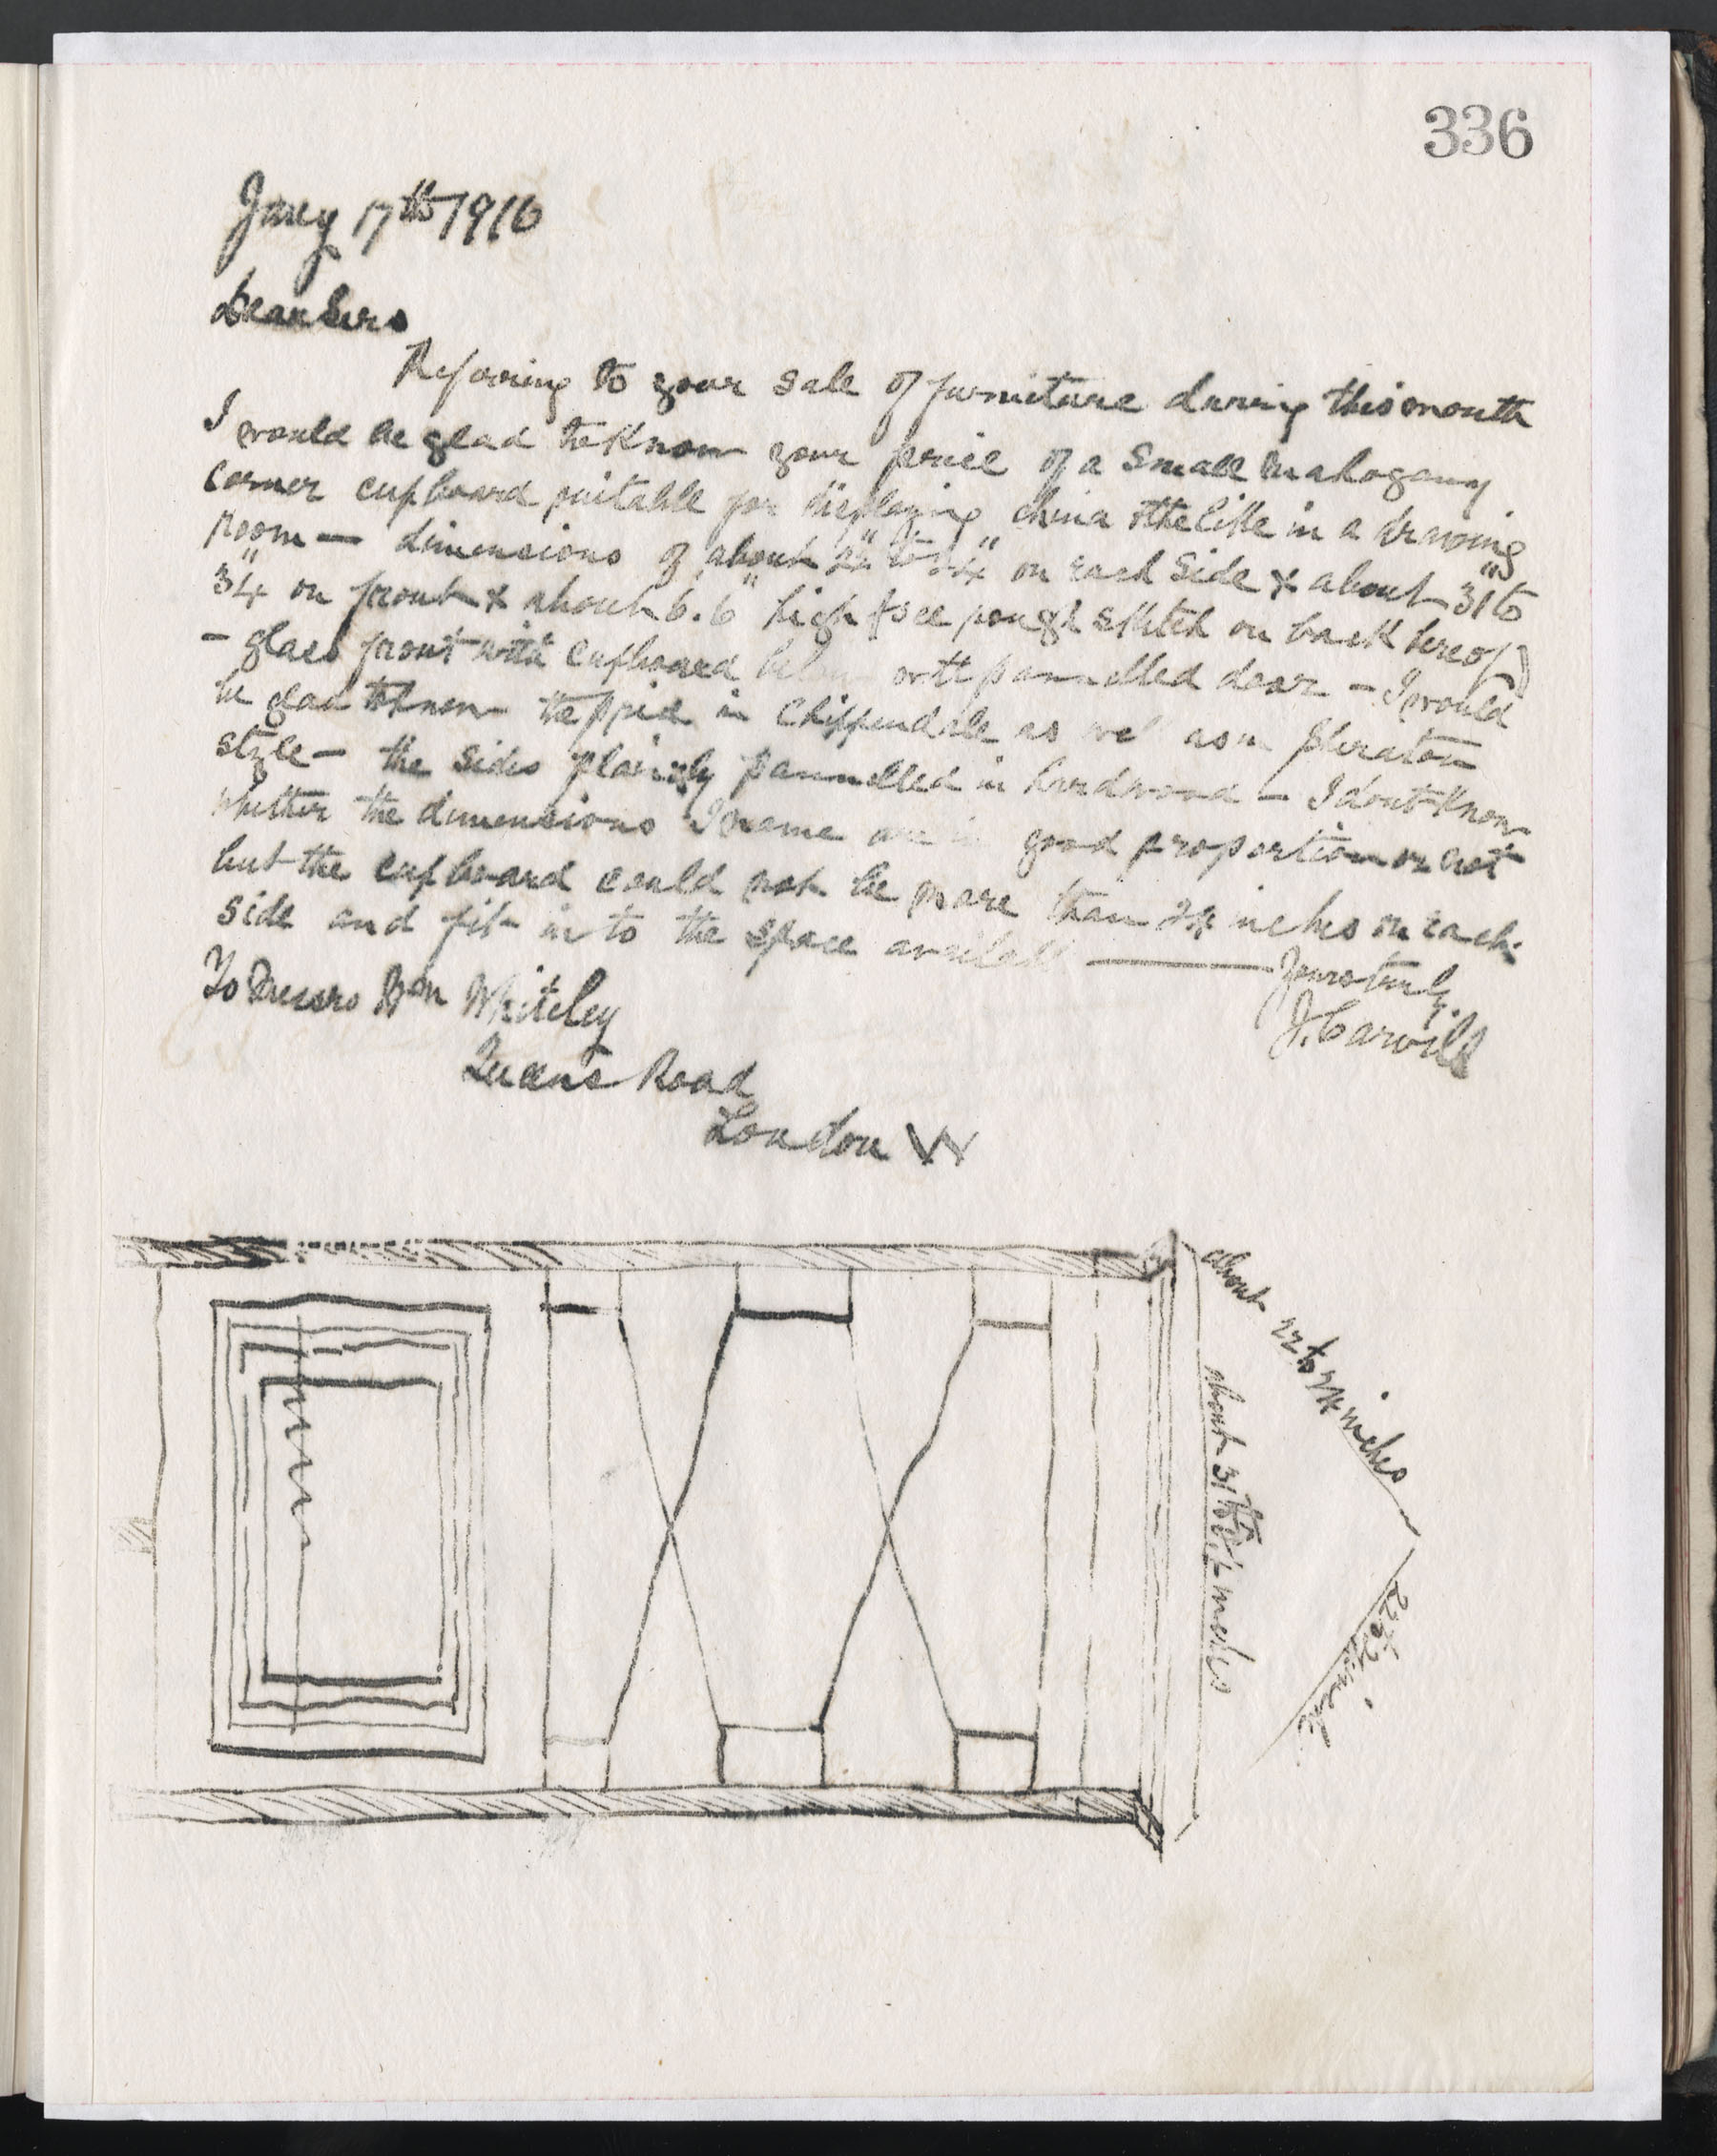 336
Jany 17th 1916
Dear Sirs
Referring to your sale of furniture during this month
I would be glad to know your price of a small mahogany
corner cupboard suitable for displaying china & the like in a drawing
room — dimensions of about 22" to 24" on each side & about 31" to
34" on front & about 6.6" high (see rough sketch on back hereof)
- glass front with cupboard below with pannelled door - I would
be glad to know the price in Chippendale as well as in Sheraton
style - the sides plainly pannelled in hardwood - I dont know
whether the dimensions I name are in good proportion or not
but the cupboard could not be more than 24 inches on each
side and fit in to the space available ——— Yours truly
To Messrs Wm Whiteley
J. Carvill
Queens Road
London W
about 22 to 24 inches
about 31 to 34 inches
22 to 24 inch